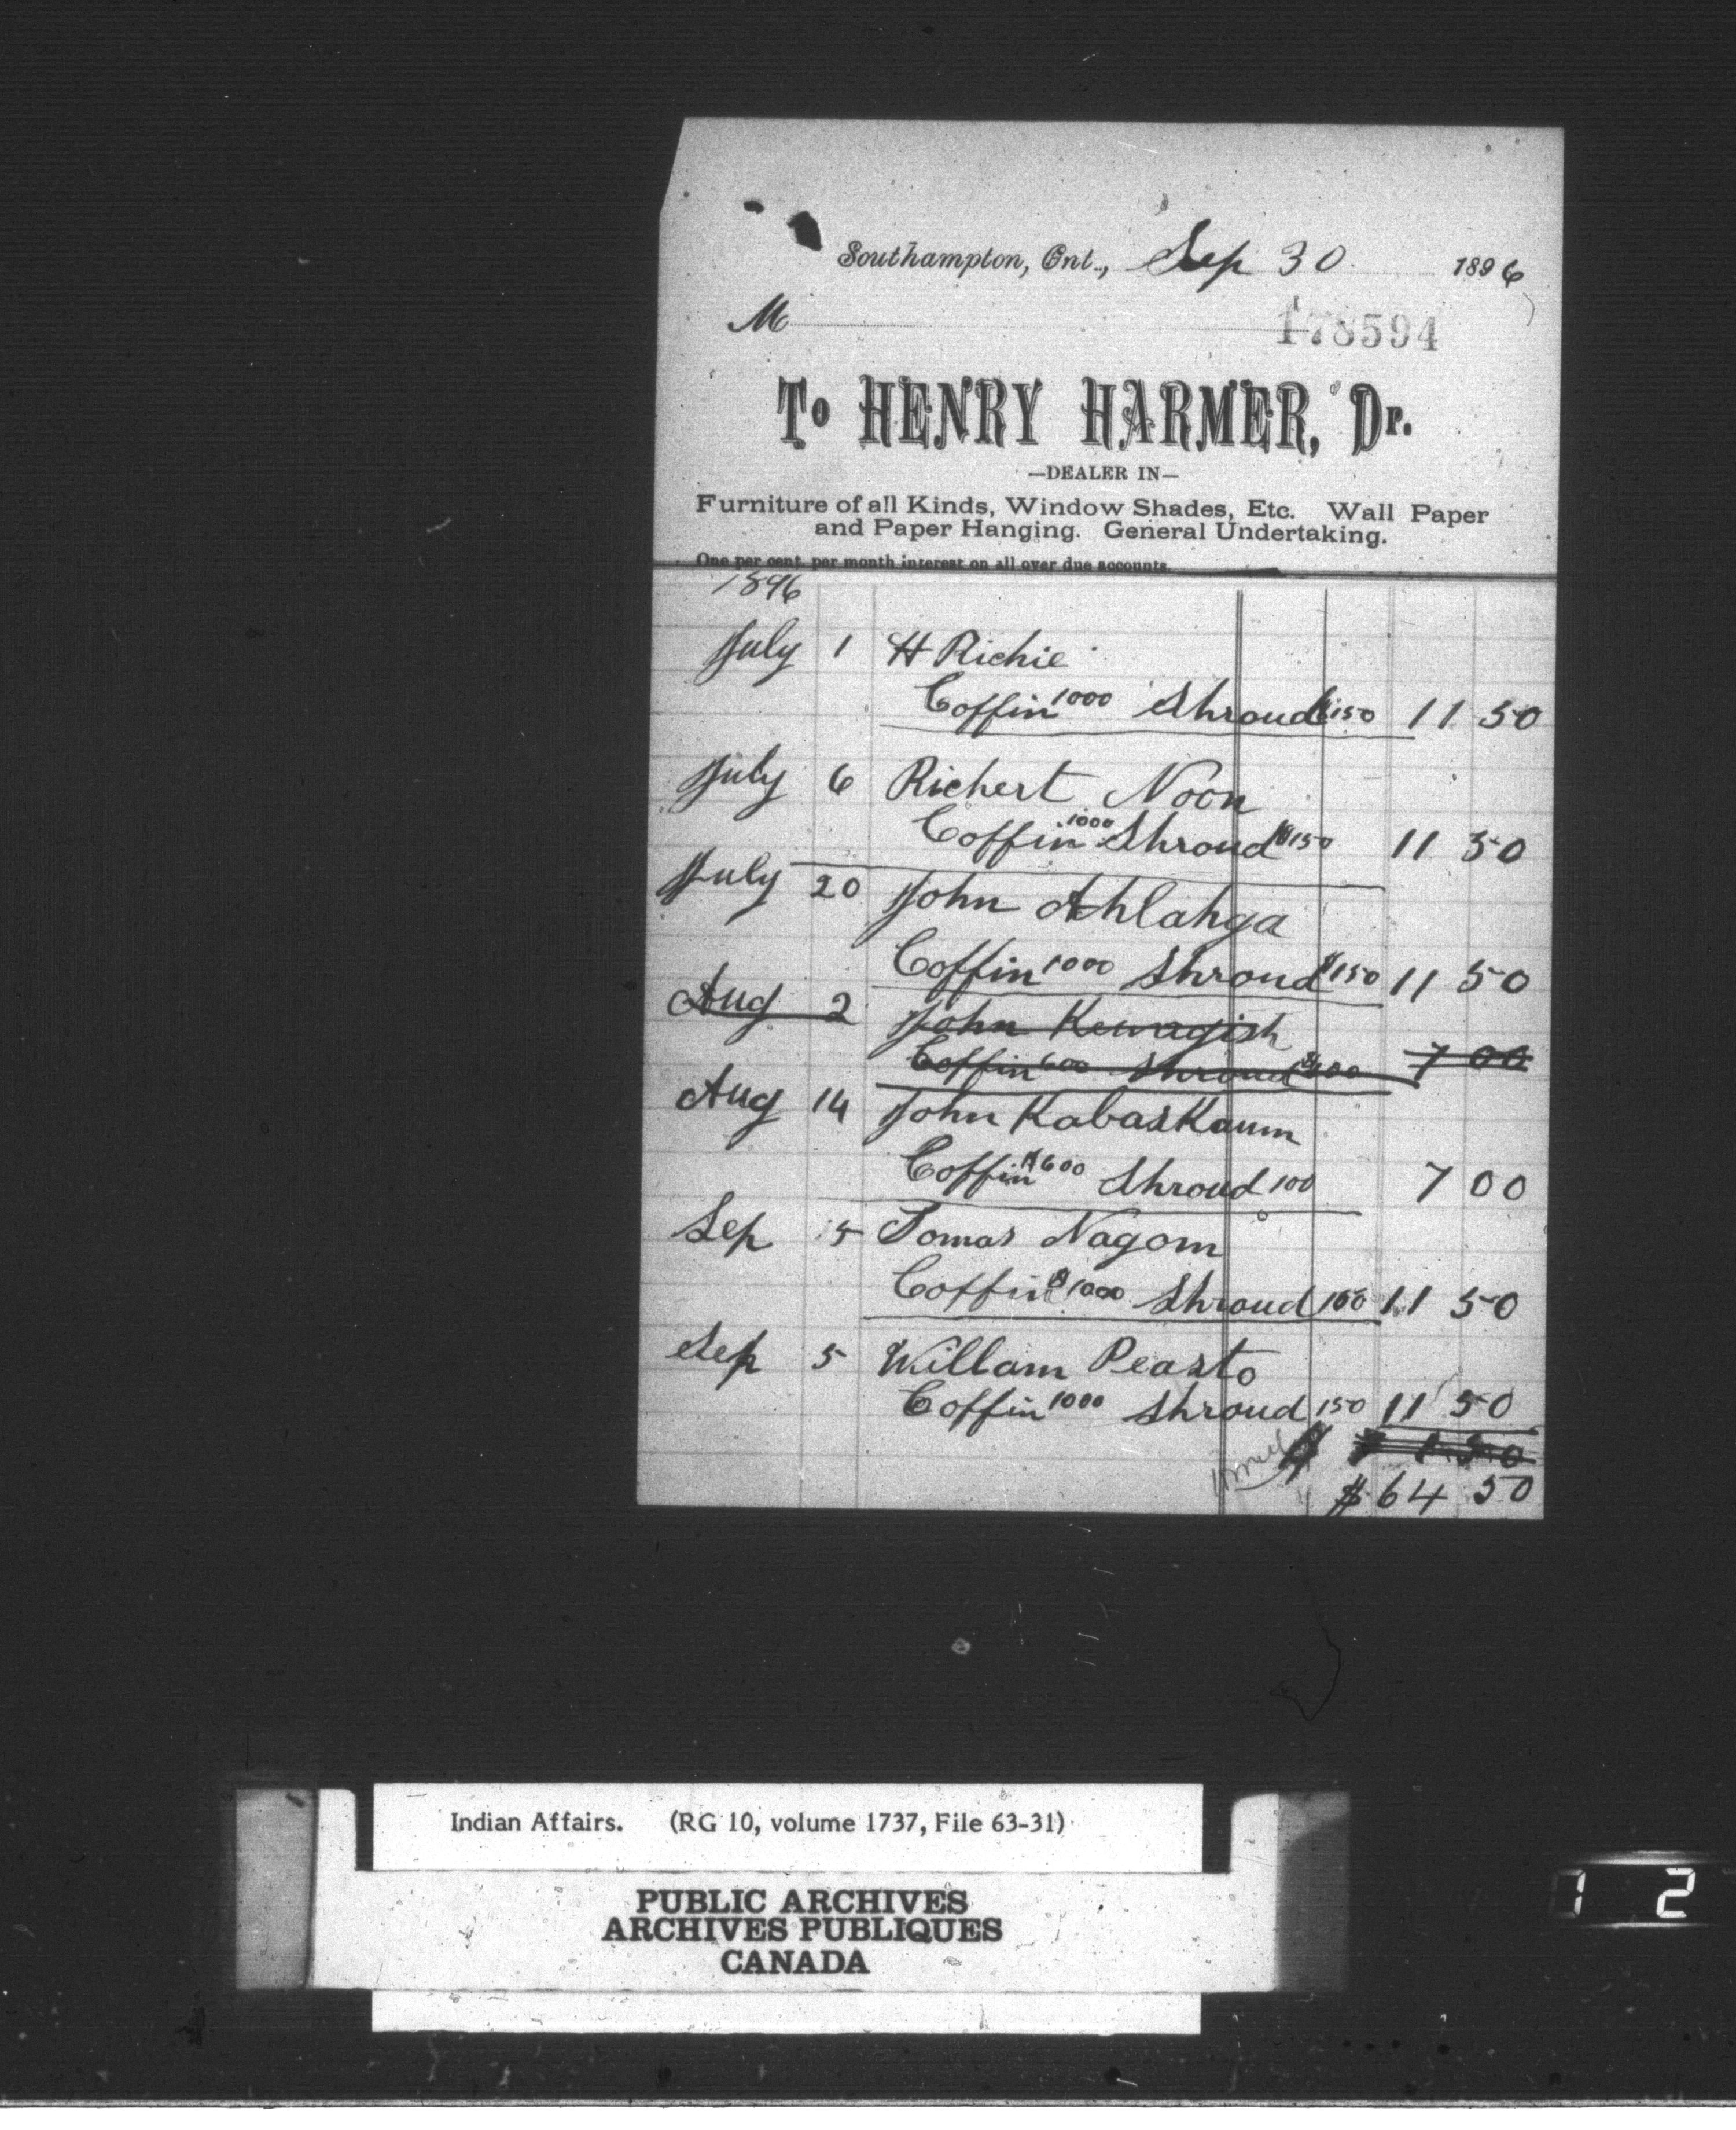 Southampton, Ont., Sep 30 1896
M 178594
To HENRY HARMER, Dr.
—DEALER IN—
Furniture of all Kinds, Window Shades, Etc. Wall Paper
and Paper Hanging. General Undertaking.
One per cent. per month interest on all over due accounts.
1896
July 1 H Richie
Coffin 1000 Shroud $150 11 50
July 6 Richert Noon
Coffin 1000 Shroud $150 11 50
July 20 John Ahlahga
Coffin 1000 Shroud $150 11 50
Aug 2 John Kewagish
Coffin 600 Shroud $100 7 00
Aug 14 John Kabaskaum
Coffin $600 Shroud 100 7 00
Sep 5 Tomas Nagom
Coffin $1000 Shroud 150 11 50
Sep 5 Willam Peasto
Coffin 1000 Shroud 150 11 50
$ 64 50
Indian Affairs. (RG 10, volume 1737, File 63-31)
PUBLIC ARCHIVES
ARCHIVES PUBLIQUES
CANADA
1 2